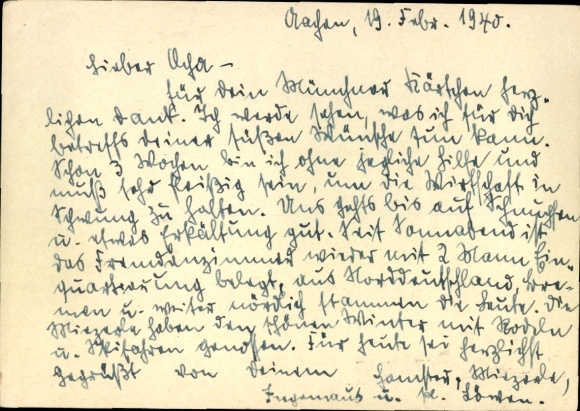 Aachen, 19. Febr. 1940.
Lieber Ocha –
Für Dein Münchner Kärtchen herz-
lichen Dank. Ich werde sehen, was ich für Dich
betreffs Deiner süßen Wünsche tun kann.
Schon 3 Wochen bin ich ohne jegliche Hilfe und
muß sehr fleißig sein, um die Wirtschaft in
Schwung zu halten. Uns gehts bis auf Schnupfen
u. etwas Erkältung gut. Seit Sonnabend ist
das Fremdenzimmer wieder mit 2 Mann Ein-
quartierung belegt, aus Norddeutschland, Bre-
men u. weiter nördlich stammen die Leute. Die
Miezele haben den schönen Winter mit Rodeln
u. Skifahren genossen. Für heute sei herzlichst
gegrüßt von Deinem Hamster, Miezele,
u. Löwen.